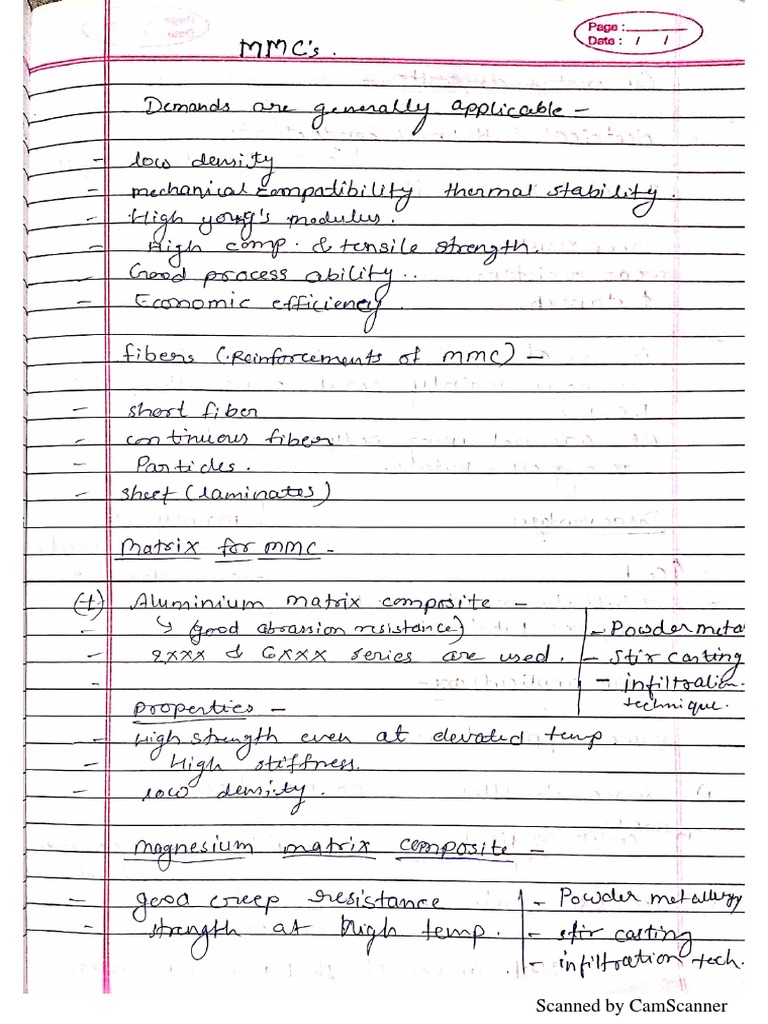 Page :
Date : / /
MMC's.
Demands are generally applicable -
- low density
- mechanical compatibility thermal stability.
- High young's modulus.
- High comp. & tensile strength.
- Good process ability..
- Economic efficiency
fibers (Reinforcements of MMC) -
- short fiber
- continuous fiber
- Particles.
- sheet (laminates)
Matrix for MMC -
Aluminium matrix composite -
- ↳ (good abrassion resistance)
- 2xxx & 6xxx series are used.
-
- Powder meta
- Stir casting
- infiltration.
technique.
Properties -
- High strength even at elevated temp.
- High stiffness.
- low density.
Magnesium matrix composite -
- good creep resistance
- strength at high temp.
- Powder metallergy
- stir casting
- infiltration tech.
Scanned by CamScanner